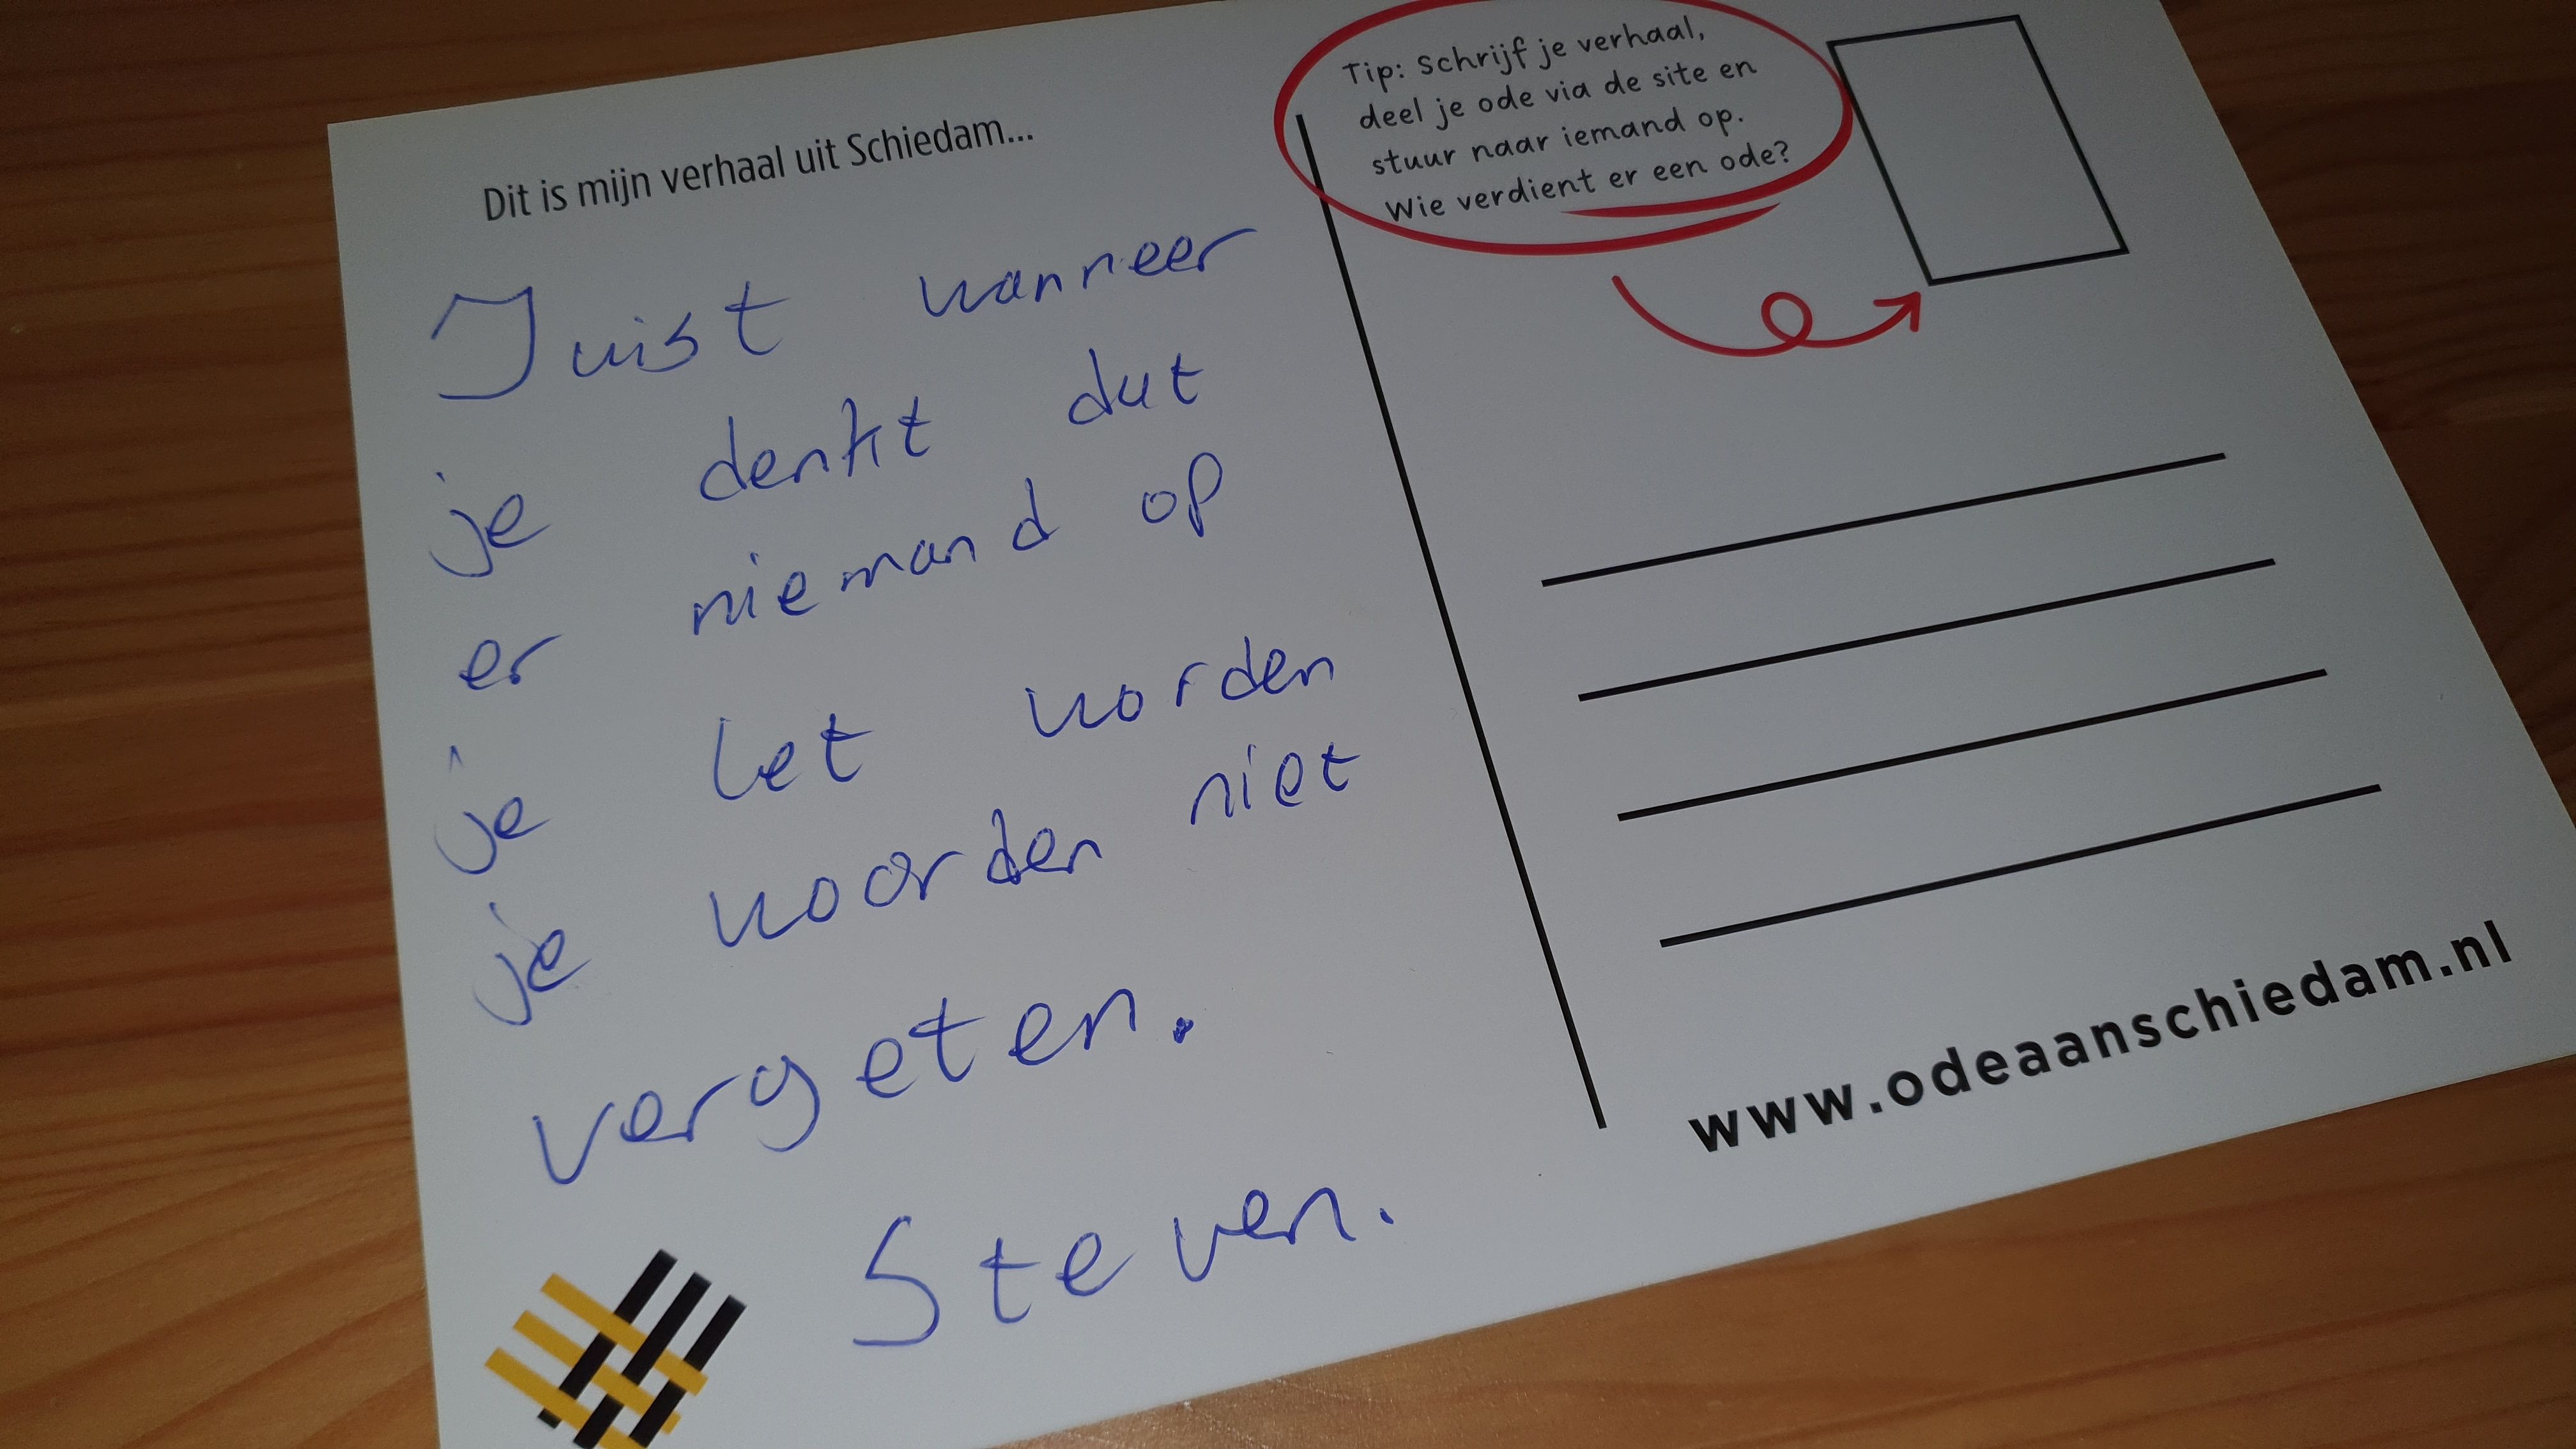 Dit is mijn verhaal uit Schiedam...
Juist wanneer
je denkt dat
er niemand op
je let worden
je woorden niet
vergeten.
Steven.
Tip: Schrijf je verhaal,
deel je ode via de site en
stuur naar iemand op.
Wie verdient er een ode?
www.odeaanschiedam.nl